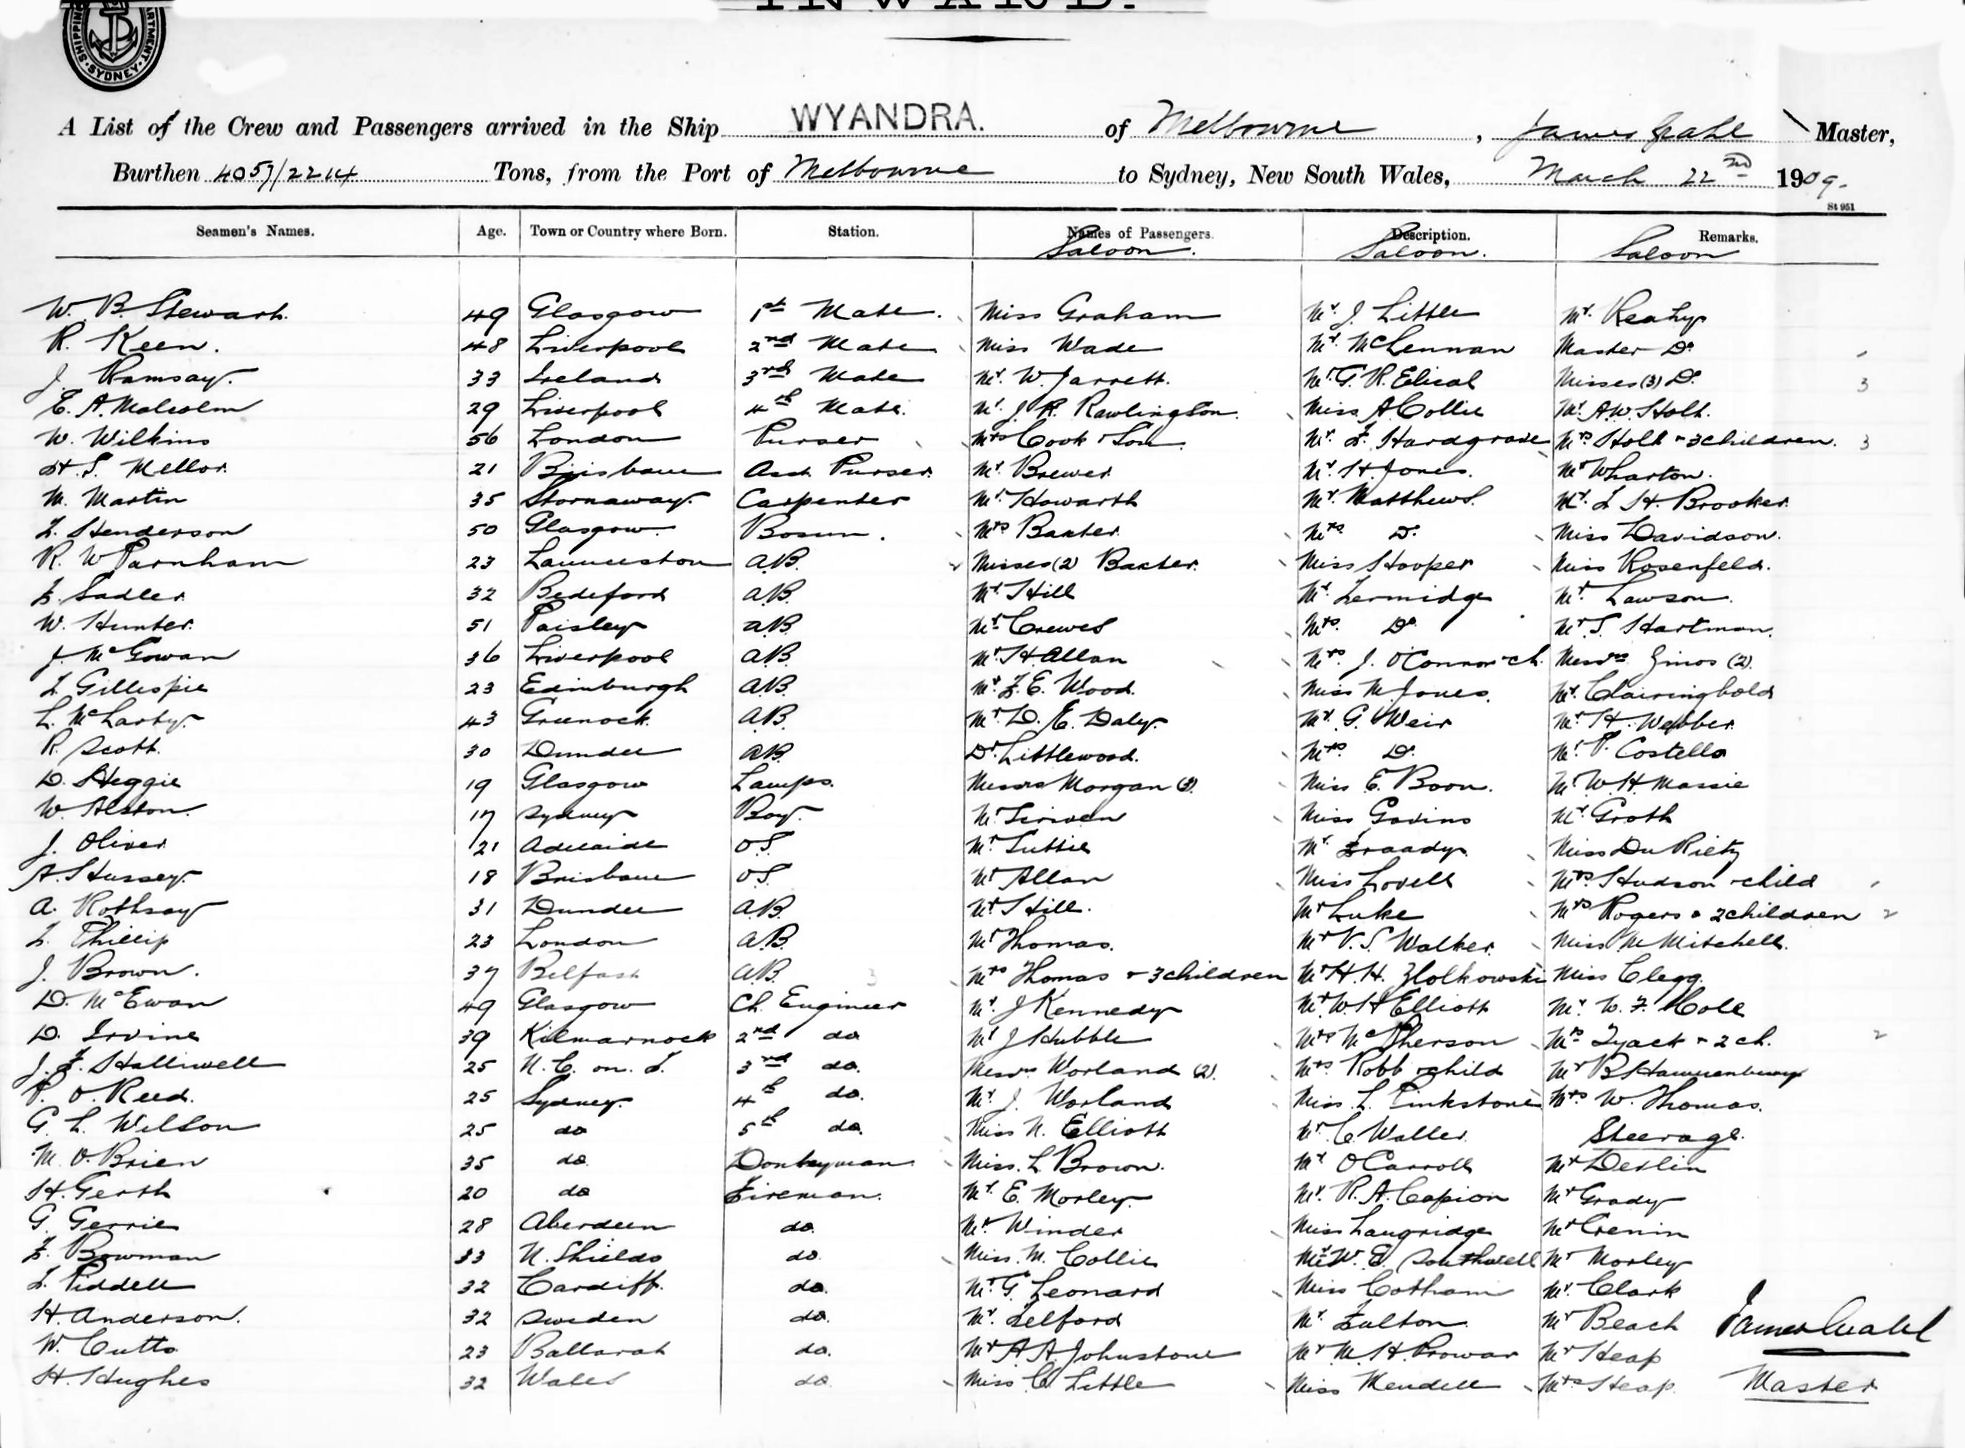 INWARD.
SHIPPING DEPARTMENT. SYDNEY.
A List of the Crew and Passengers arrived in the Ship WYANDRA. of Melbourne, James Master,
Burthen 4057/2214 Tons, from the Port of Melbourne to Sydney, New South Wales, March 22nd 1909.
St 951
Seamen's Names. Age. Town or Country where Born. Station. Names of Passengers. Description. Remarks.
Saloon. Saloon. Saloon
W. B. Stewart. 49 Glasgow 1st Mate. Miss Graham Mr. J. Little Mr. Healy
R. Keen. 48 Liverpool 2nd Mate Miss Wade Mr. McLennan Master Do
J. Ramsay. 33 Ireland 3rd Mate Mr. W. Jarrett. Mr. G. R. Misses (3) Do. 3
E. A. Malcolm 29 Liverpool 4th Mate. Mr. J. R. Rawlington. Miss A Collie Mr. A. W. Holt.
W. Wilkins 56 London Purser Cook & Son Mr. F. Hardgrave Mrs Holt & 3 children. 3
H. S. Mellor. 21 Brisbane Asst Purser. Mr. Brewer. Mr. H Jones. Mr Wharton.
M. Martin 35 Stornaway. Carpenter Mr. Howarth Mr. Matthews. Mr. F. H. Brooker.
F. Henderson 50 Glasgow. Bosun. Mrs Baxter. Mrs Do. Miss Davidson.
R. W Parnham 23 Launceston A.B. Misses (2) Baxter. Miss Hooper Miss Rosenfeld.
F. Sadler. 32 Bedeford A.B. Mr. Hill Mr. Mr. Lawson.
W. Hunter. 51 Paisley A.B. Mr. Crewes Mrs. Do Mr. S. Hartman.
J. McGowan 36 Liverpool A.B. Mr. H. Allan Mrs. J. O'Connor & ch. Messrs Zinos (2).
F Gillespie 23 Edinburgh A.B. Mr. F. E. Wood. Miss M Jones. Mr. Clairingbold
L. McLarty. 43 Greenock. A.B. Mr. D. E. Daly. Mr. G. Weir Mr. H. Webber.
R. Scott. 30 Dundee A.B. Dr. Littlewood. Mrs Do. Mr. P. Costello
D. Heggie 19 Glasgow Lamps. Messrs Morgan (3). Miss E. Boon. Mr. W. H. Massie
W. Alston. 17 Sydney Boy. Mr. Miss Gavins Mr. Groth
J. Oliver. 21 Adelaide O.S. Mr. Suttie Mr. Miss Du Rietz
A. Hussey. 18 Brisbane O.S. Mr Allan Miss Lovell Mrs. Hudson & child
A. Rothsay 31 Dundee A.B. Mr. Hill. Mr Luke Mrs Rogers & 2 children 2
F. Phillip 23 London A.B. Mr Thomas. Mr V. S. Walker. Miss M Mitchell.
J. Brown. 37 Belfast A.B. 3 Mrs Thomas & 3 children Mr H. H. Zlolkowski Miss Clegg.
D. McEwan 49 Glasgow Ch. Engineer Mr. J Kennedy Mr. W. H Elliott Mr. W. F. Cole
D. Irvine 39 Kilmarnock 2nd do Mr J Hubble Mrs McPherson Mrs Tyack & 2 ch. 2
J. F. Halliwell 25 N. C. on. T. 3rd do. Messrs Worland (2). Mrs. Robb & child Mr B
P. O. Reed. 25 Sydney. 4th do. Mr. J. Worland Miss L. Pinkstone Mrs W. Thomas.
G. L. Wilson 25 do 5th do. Miss N. Elliott Mr C. Waller. Steerage.
M. O'Brien 35 do Donkeyman Miss. L Brown. Mr O Carroll Mr Devlin
H. Gerth 20 do Fireman. Mr. E. Morley Mr. R. A. Capion Mr Grady
G. Gerrie 28 Aberdeen do. Mr. Winder Miss Langridge Mr Cremin
F. Bowman 33 N. Shields do. Miss. M. Collie Mr W. E. Southwell Mr Morley
F. Piddell 32 Cardiff. do. Mr. G. Leonard Miss Cotham Mr. Clark
H. Anderson. 32 Sweden do. Mr. Telford Mr. Fulton. Mr Beach
W. Cutts. 23 Ballarat do. Mr A A Johnstone Mr M. H. Prowar Mr Heap
H. Hughes 32 Wales do. Miss C. Little Miss Kendell Mrs Heap.
James
Master